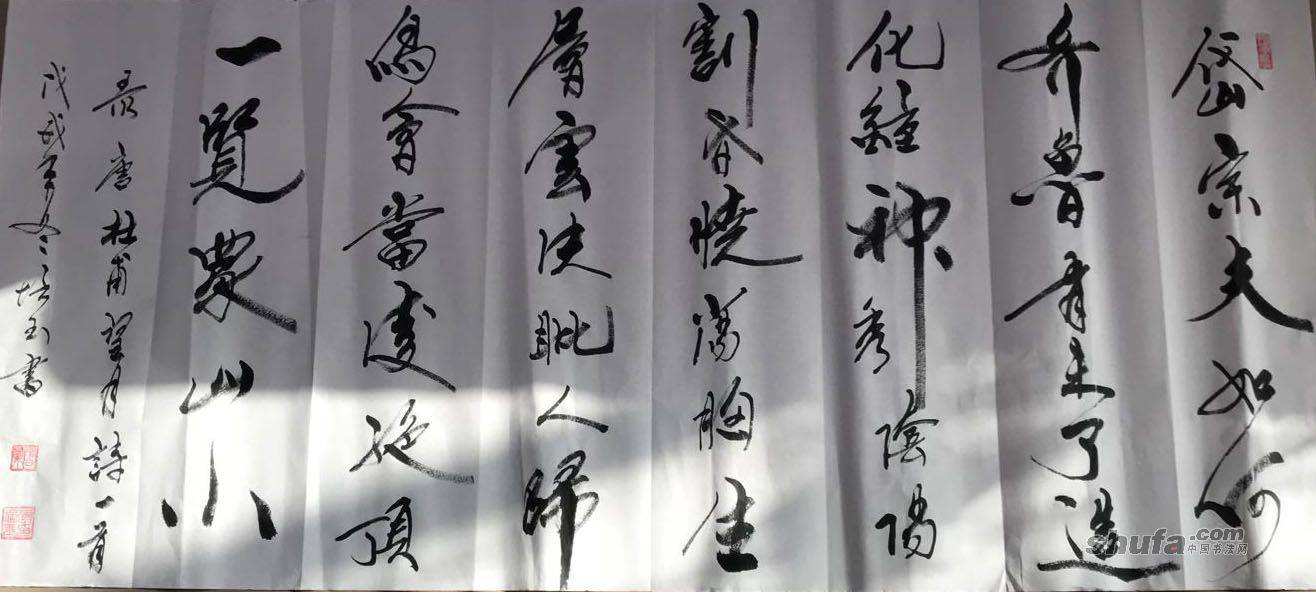 岱宗夫如何
齐魯青未了造
化鍾神秀陰陽
割昏曉蕩胸生
層雲决眦入歸
鳥會當凌絶頂
一覽衆山小
录唐杜甫望月詩一首
戊戌年冬培玉書
shufa.com
中国书法网